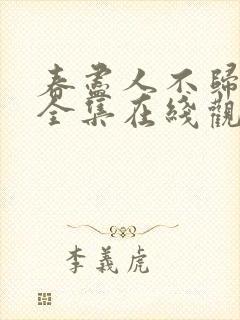 春盡人不歸
全集在綫觀
李義虎